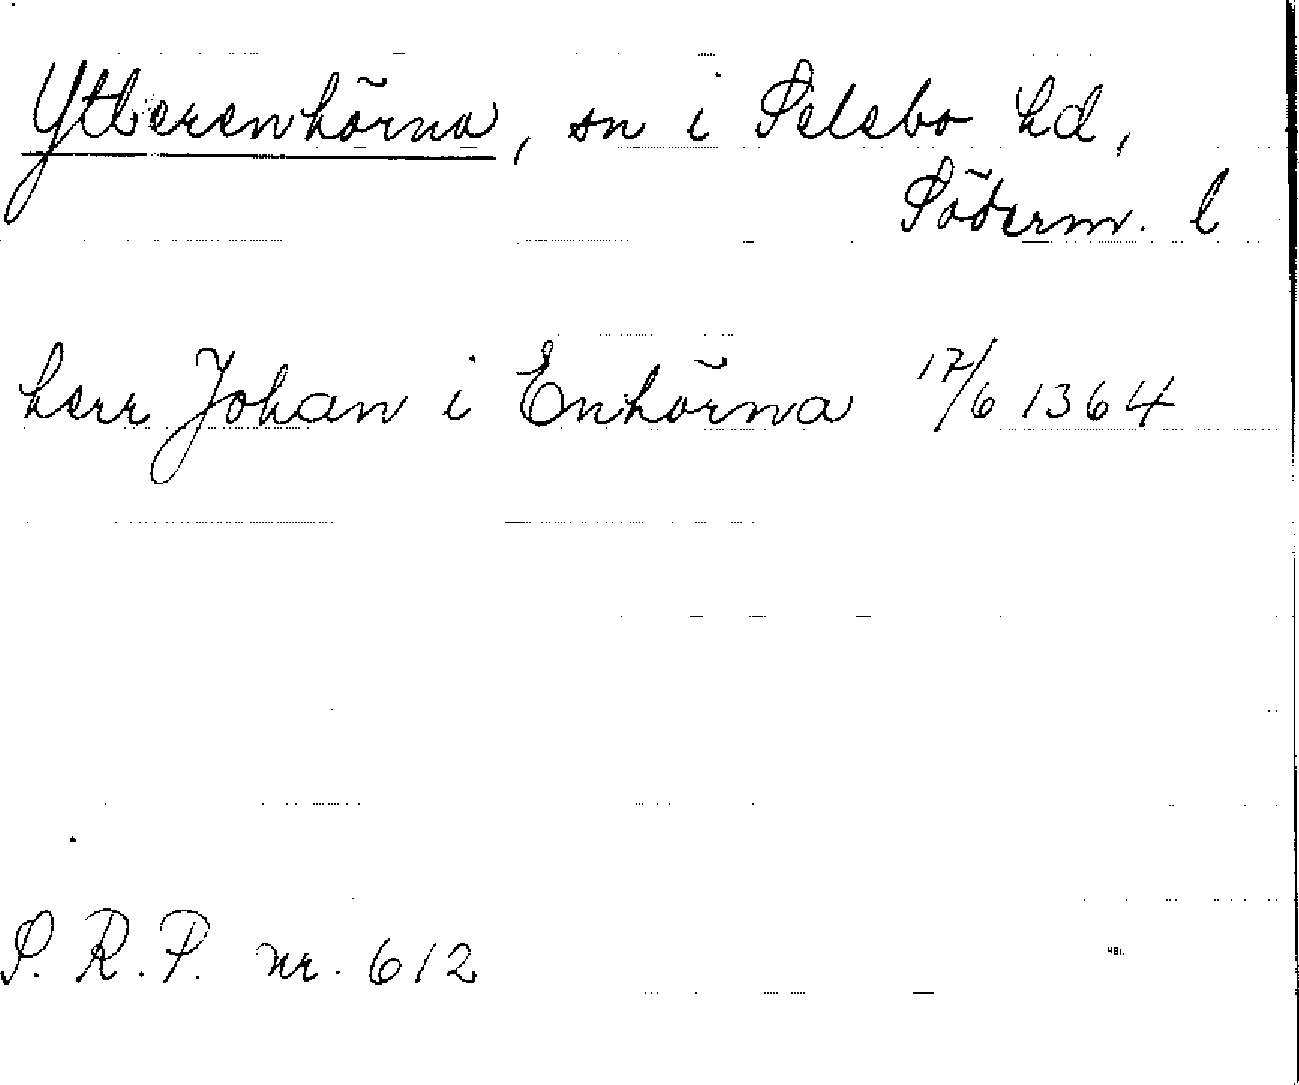 Ytterenhörna, sn i Selebo hd,
Söderm. l
herr Johan i Enhörna 17/6 1364
S. R. P. nr. 612